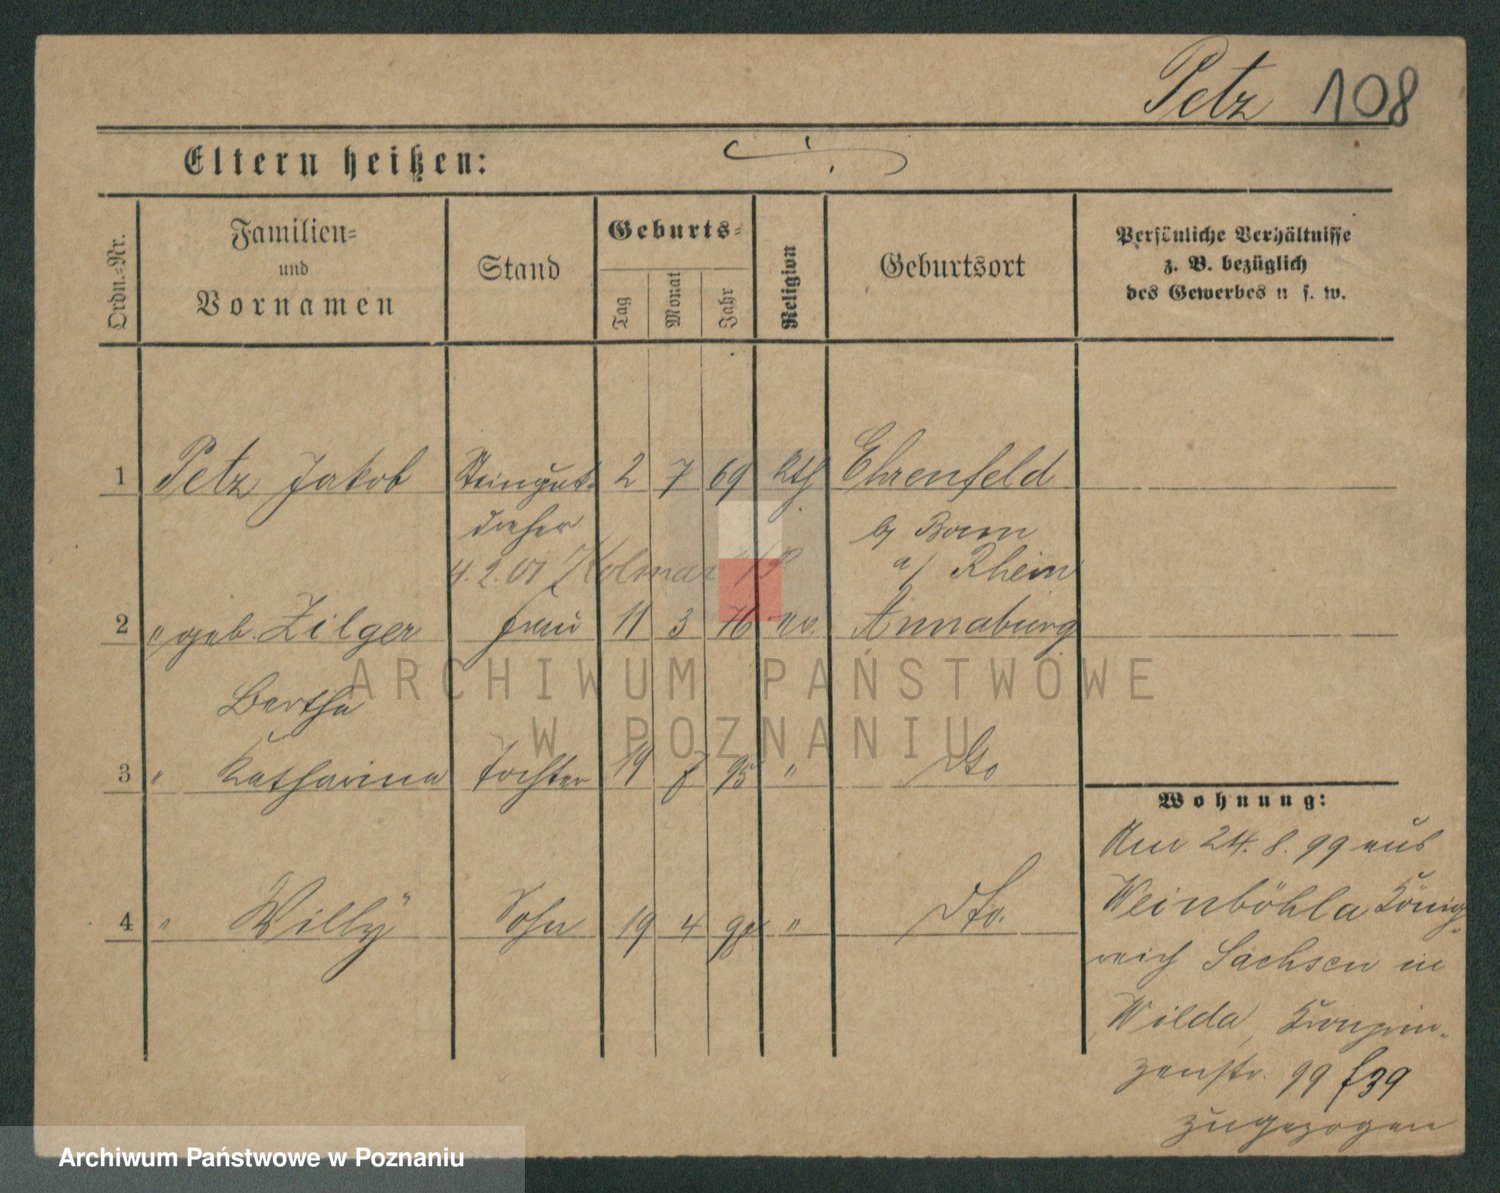 Petz 108
Eltern heißen:
Ordn.=Nr.
Familien=
und
Vornamen
Stand
Geburts=
Tag
Monat
Jahr
Religion
Geburtsort
Persönliche Verhältnisse
z. B. bezüglich
des Gewerbes u s. w.
1 Petz Jakob Steingut- 2 7 69 kth Ehrenfeld
dreher b/ Bonn
4.2.01 Kolmar i/P a/ Rhein
2 " geb. Zilger Frau 11 3 76 ev. Annaburg
Bertha
3 " Katharina Tochter 19 8 95 " Dto
4 " Willy Sohn 19 4 98 " Dto.
Wohnung:
Am 24. 8. 99 aus
Weinböhla König-
reich Sachsen in
Wilda, Kronprin-
zenstr. 99 f39
zugezogen
ARCHIWUM PAŃSTWOWE
W POZNANIU
Archiwum Państwowe w Poznaniu